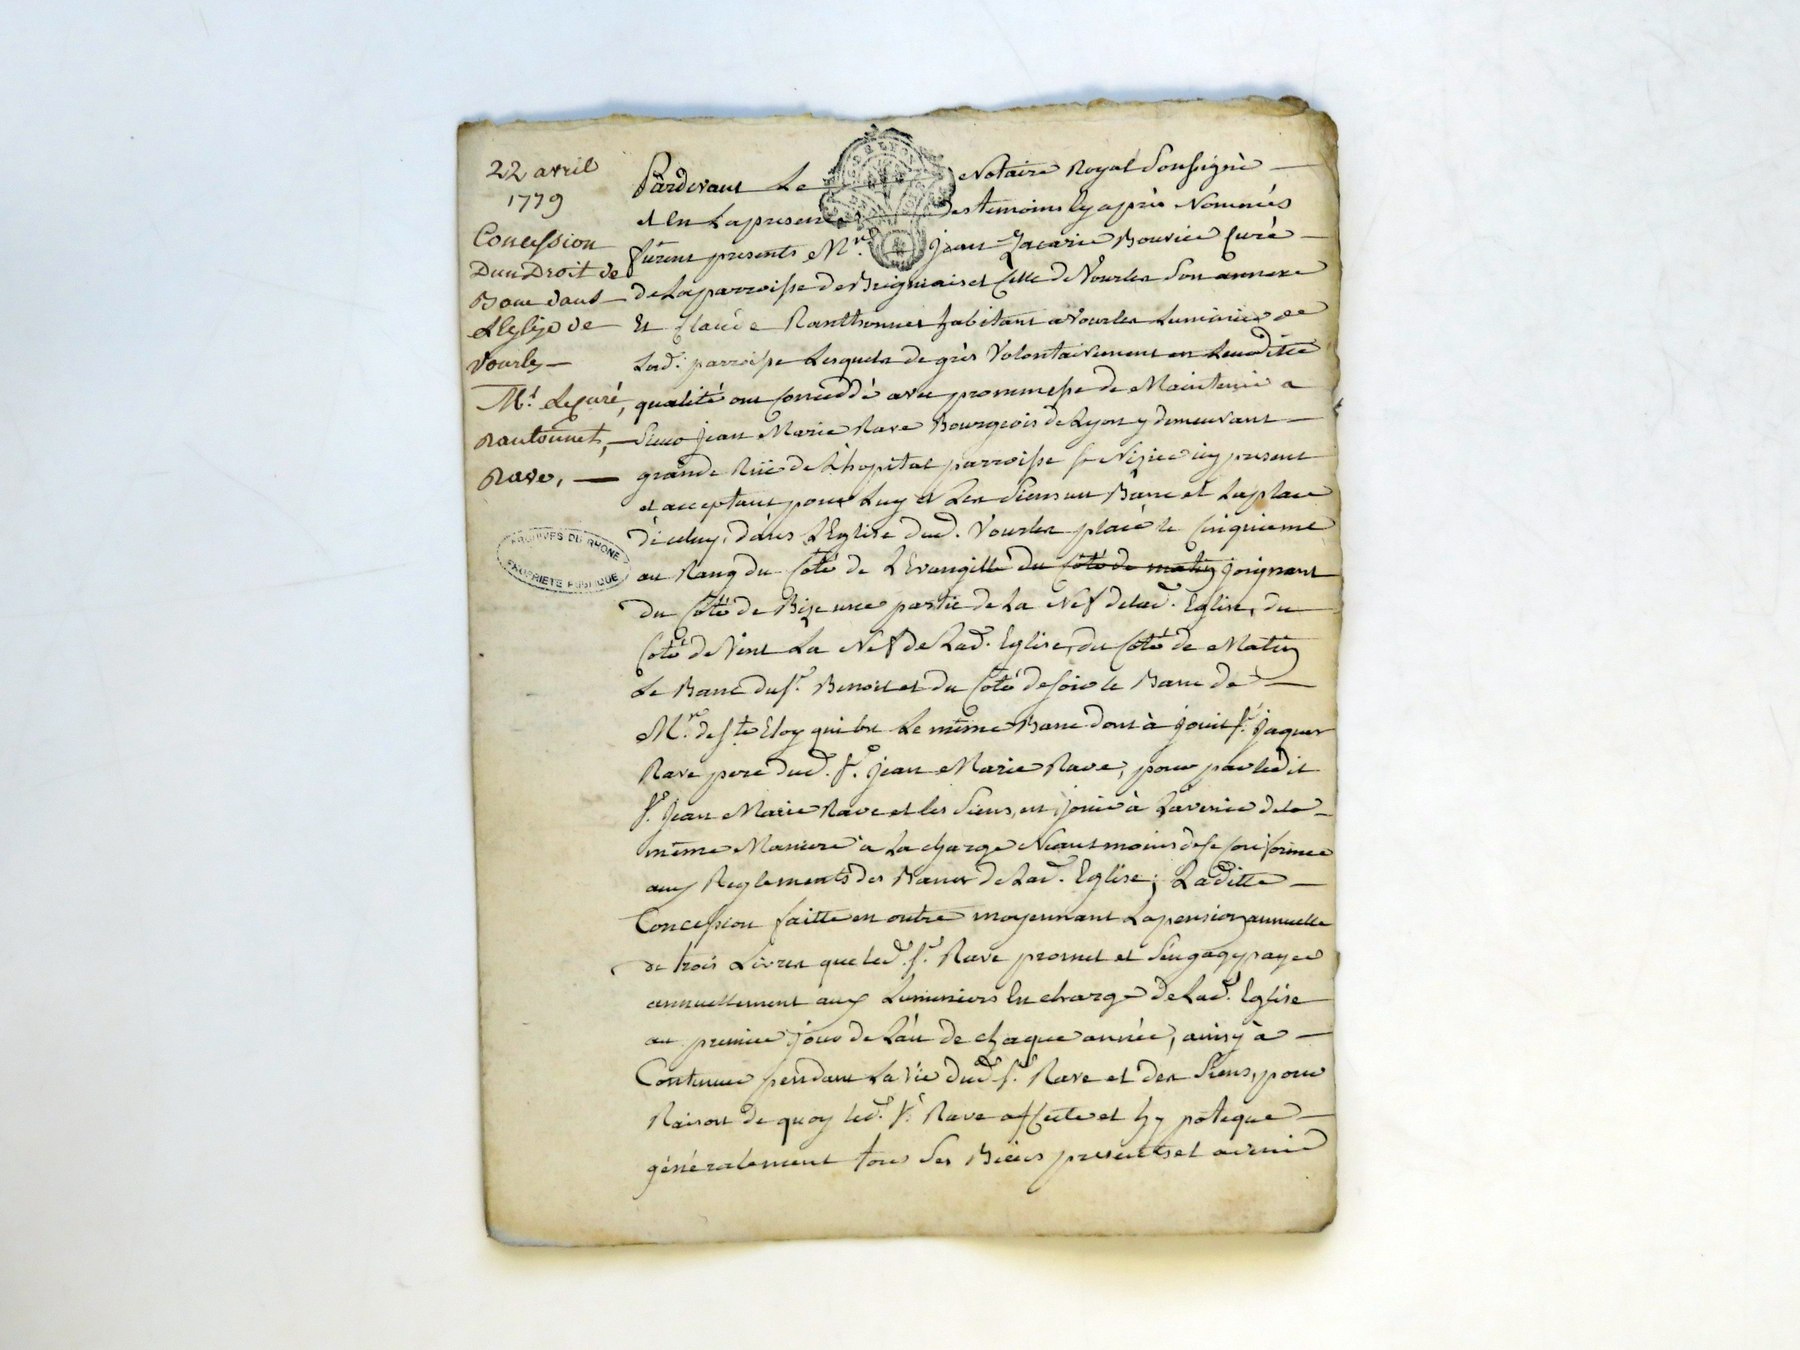 22 avril
1779
Concession
Dun Droit de
Banc dans
Leglise de
Vourles
Mr. Lecuré,
Rantonnet,
Rave,
ARCHIVES DU RHONE
PROPRIETE PUBLIQUE
Pardevant Le Notaire Royal Soussigné
et En La presence des temoins Cy aprés Nommés
fürent presents Mr. Jean Zacarie Bouvier Curé
de La parroisse de Brignais et Celle de Vourles Son annexe
Et Claude Ranthonnet habitant a Vourles Luminier de
Lad. parroisse Lesquels de grés Volontairement en Leurditte
qualité ont Conceddé avec prommesse de Maintenir a
Sieur Jean Marie Rave Bourgeois de Lyon y demeurant
grande Rüe de L'hopital parroisse St Nizier icy present
et acceptant pour Luy et Les Siens un Banc et La place
d'iceluy, dans L'Eglise dud. Vourles placé le Cinquieme
au Rang du Coté de L'Evangille du Coté de matin joignant
du Coté de Bize une partie de La Nef de lad. Eglise, du
Coté de Vent La Nef de Lad. Eglise, du Coté de Matin
Le Banc du Sr. Benoit et du Coté de soir le Banc de
Mr. de Ste Eloy qui est Le même Banc dont à jouit Sr. Jaques
Rave pere dud. Sr. Jean Marie Rave, pour par ledit
Sr. Jean Marie Rave et les Siens, en jouir à L'avenir de la
même Maniere à La charge Neantmoins de se Conformer
aux Reglements des Bancs de Lad. Eglise; Laditte
Concession faitte en outre moyennant La pension annuelle
de trois Livres que led. Sr. Rave promet et S'engage payer
annuellement aux Luminiers En charge de Lad. Eglise
au premier jour de L'an de chaque année, ainsy à
Continuer pendant La vie dud. Sr. Rave et des Siens, pour
Raison de quoy led. Sr. Rave affecte et hypoteque
généralement tous Ses Biens presents et avenir